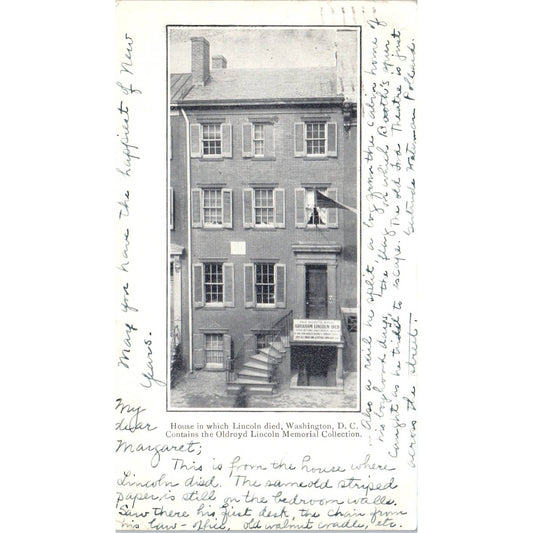 May you have the happiest of New
Years.
ABRAHAM LINCOLN DIED
House in which Lincoln died, Washington, D. C.
Contains the Oldroyd Lincoln Memorial Collection.
My
dear
Margaret;
This is from the house where
Lincoln died. The same old striped
paper is still on the bedroom walls.
Saw there his first desk, the chair from
his law-office, old walnut cradle, etc.
Also a rail he split, a log from the cabin home of
his boyhood days, the flag in which Booth's spur
caught as he tried to escape. The old Ford Theatre is just
across the street— Gertrude